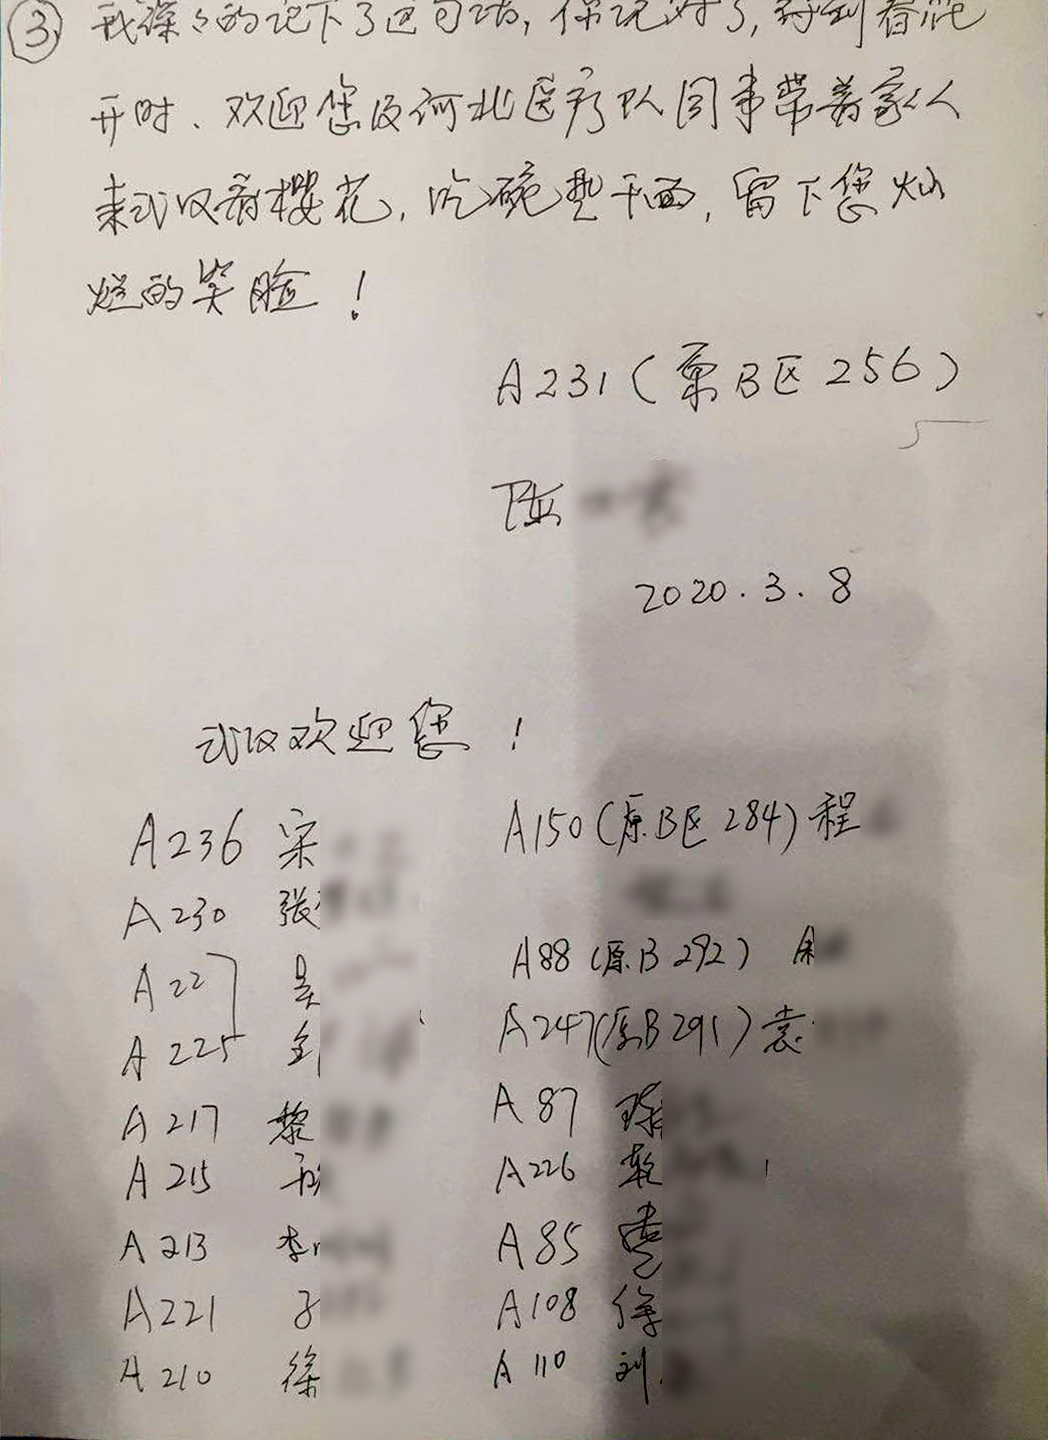 ③ 我深々的记下了这句话，你说对了，等到春花
开时、欢迎您及河北医疗队同事带着家人
来武汉看樱花，吃碗热干面，留下您灿
烂的笑脸！
A231（原B区256）
陈
2020.3.8
武汉欢迎您！
A236 宋
A230 张
A227 吴
A225
A217 黎
A215
A213 李
A221
A210 徐
A150（原B区284）程
A88（原B292）
A247（原B291）袁
A87
A226
A85
A108 徐
A110 刘